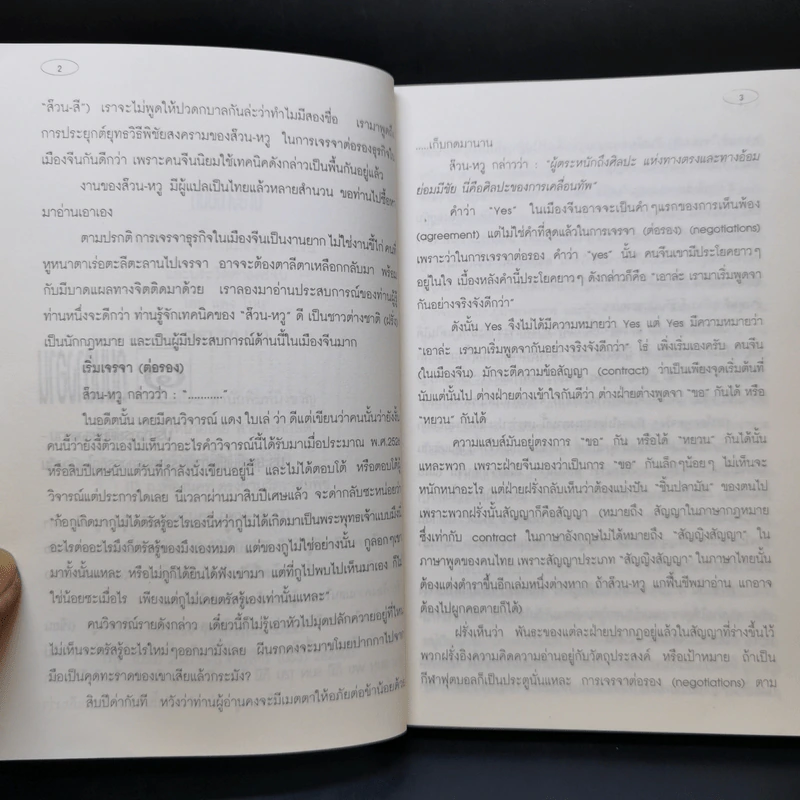 2
"ส้วน-สี") เราจะไม่พูดให้ปวดกบาลกันล่ะว่าทำไมมีสองชื่อ เรามาพูดถึง
การประยุกต์ยุทธวิธีพิชัยสงครามของส้วน-หวู ในการเจรจาต่อรองธุรกิจใน
เมืองจีนกันดีกว่า เพราะคนจีนนิยมใช้เทคนิคดังกล่าวเป็นพื้นกันอยู่แล้ว
งานของส้วน-หวู มีผู้แปลเป็นไทยแล้วหลายสำนวน ขอท่านไปซื้อหา
มาอ่านเอาเอง
ตามปรกติ การเจรจาธุรกิจในเมืองจีนเป็นงานยาก ไม่ใช่งานขี้ไก่ คนที่
หูหนาตาเร่อตะลีตะลานไปเจรจา อาจจะต้องตาลีตาเหลือกกลับมา พร้อม
กับมีบาดแผลทางจิตติดมาด้วย เราลองมาอ่านประสบการณ์ของท่านผู้รู้
ท่านหนึ่งจะดีกว่า ท่านรู้จักเทคนิคของ "ส้วน-หวู" ดี เป็นชาวต่างชาติ (ฝรั่ง)
เป็นนักกฎหมาย และเป็นผู้มีประสบการณ์ด้านนี้ในเมืองจีนมาก
เริ่มเจรจา (ต่อรอง)
ส้วน-หวู กล่าวว่า : ".........."
ในอดีตนั้น เคยมีคนวิจารณ์ แดง ใบเล่ ว่า ดีแต่เขียนว่าคนนั้นว่ายังงั้น
คนนี้ว่ายังงี้ตัวเองไม่เห็นว่าอะไรคำวิจารณ์นี้ได้รับมาเมื่อประมาณ พ.ศ.252
หรือสิบปีเศษนับแต่วันที่กำลังนั่งเขียนอยู่นี้ และไม่ได้ตอบโต้ หรือตอบได้ผู้
วิจารณ์แต่ประการใดเลย นี่เวลาผ่านมาสิบปีเศษแล้ว จะด่ากลับซะหน่อยว่า
"ก้อกูเกิดมากูไม่ได้ตรัสรู้อะไรเองนี่หว่ากูไม่ได้เกิดมาเป็นพระพุทธเจ้าแบบมึงนี่
อะไรต่ออะไรมึงก็ตรัสรู้ของมึงเองหมด แต่ของกูไม่ใช่อย่างนั้น กูลอกๆเขา
มาทั้งนั้นแหละ หรือไม่กูก็ได้ยินได้ฟังเขามา แต่ที่กูไปพบไปเห็นมาเอง ก็ไม่
ใช่น้อยซะเมื่อไร เพียงแต่กูไม่เคยตรัสรู้เองเท่านั้นแหละ"
คนวิจารณ์รายดังกล่าว เดี๋ยวนี้ก็ไม่รู้เอาหัวไปมุดปลักควายอยู่ที่ไหน
ไม่เห็นจะตรัสรู้อะไรใหม่ๆออกมามั่งเลย ผีนรกคงจะมาขโมยปากกาไปจาก
มือเป็นคุดทะราดของเขาเสียแล้วกระมัง?
สิบปีด่ากันที หวังว่าท่านผู้อ่านคงจะมีเมตตาให้อภัยต่อข้าน้อยด้วย
3
.....เก็บกดมานาน
ส้วน-หวู กล่าวว่า : "ผู้ตระหนักถึงศิลปะ แห่งทางตรงและทางอ้อม
ย่อมมีชัย นี่คือศิลปะของการเคลื่อนทัพ"
คำว่า "Yes" ในเมืองจีนอาจจะเป็นคำๆแรกของการเห็นพ้อง
(agreement) แต่ไม่ใช่คำที่สุดแล้วในการเจรจา (ต่อรอง) (negotiations)
เพราะว่าในการเจรจาต่อรอง คำว่า "yes" นั้น คนจีนเขามีประโยคยาวๆ
อยู่ในใจ เบื้องหลังคำนี้ประโยคยาวๆ ดังกล่าวก็คือ "เอาล่ะ เรามาเริ่มพูดจา
กันอย่างจริงจังดีกว่า"
ดังนั้น Yes จึงไม่ได้มีความหมายว่า Yes แต่ Yes มีความหมายว่า
"เอาล่ะ เรามาเริ่มพูดจากันอย่างจริงจังดีกว่า" โธ่ เพิ่งเริ่มเองครับ คนจีน
(ในเมืองจีน) มักจะตีความข้อสัญญา (contract) ว่าเป็นเพียงจุดเริ่มต้น
นับแต่นั้นไป ต่างฝ่ายต่างเข้าใจกันดีว่า ต่างฝ่ายต่างพูดจา "ขอ" กันได้ หรือ
"หยวน" กันได้
ความแสบส์มันอยู่ตรงการ "ขอ" กัน หรือได้ "หยวน" กันได้นั้น
แหละพวก เพราะฝ่ายจีนมองว่าเป็นการ "ขอ" กันเล็กๆน้อยๆ ไม่เห็นจะ
หนักหนาอะไร แต่ฝ่ายฝรั่งกลับเห็นว่าต้องแบ่งปัน "ชิ้นปลามัน" ของตนไป
เพราะพวกฝรั่งนั้นสัญญาก็คือสัญญา (หมายถึง สัญญาในภาษากฎหมาย
ซึ่งเท่ากับ contract ในภาษาอังกฤษไม่ได้หมายถึง "สัญญิงสัญญา" ใน
ภาษาพูดของคนไทย เพราะสัญญาประเภท "สัญญิงสัญญา" ในภาษาไทยนั้น
ต้องแต่งตำราขึ้นอีกเล่มหนึ่งต่างหาก ถ้าส้วน-หวู แกฟื้นชีพมาอ่าน แกอาจ
ต้องไปผูกคอตายก็ได้)
ฝรั่งเห็นว่า พันธะของแต่ละฝ่ายปรากฏอยู่แล้วในสัญญาที่ร่างขึ้นไว้
พวกฝรั่งอิงความคิดความอ่านอยู่กับวัตถุประสงค์ หรือเป้าหมาย ถ้าเป็น
กีฬาฟุตบอลก็เป็นประตูนั่นแหละ การเจรจาต่อรอง (negotiations) ตาม